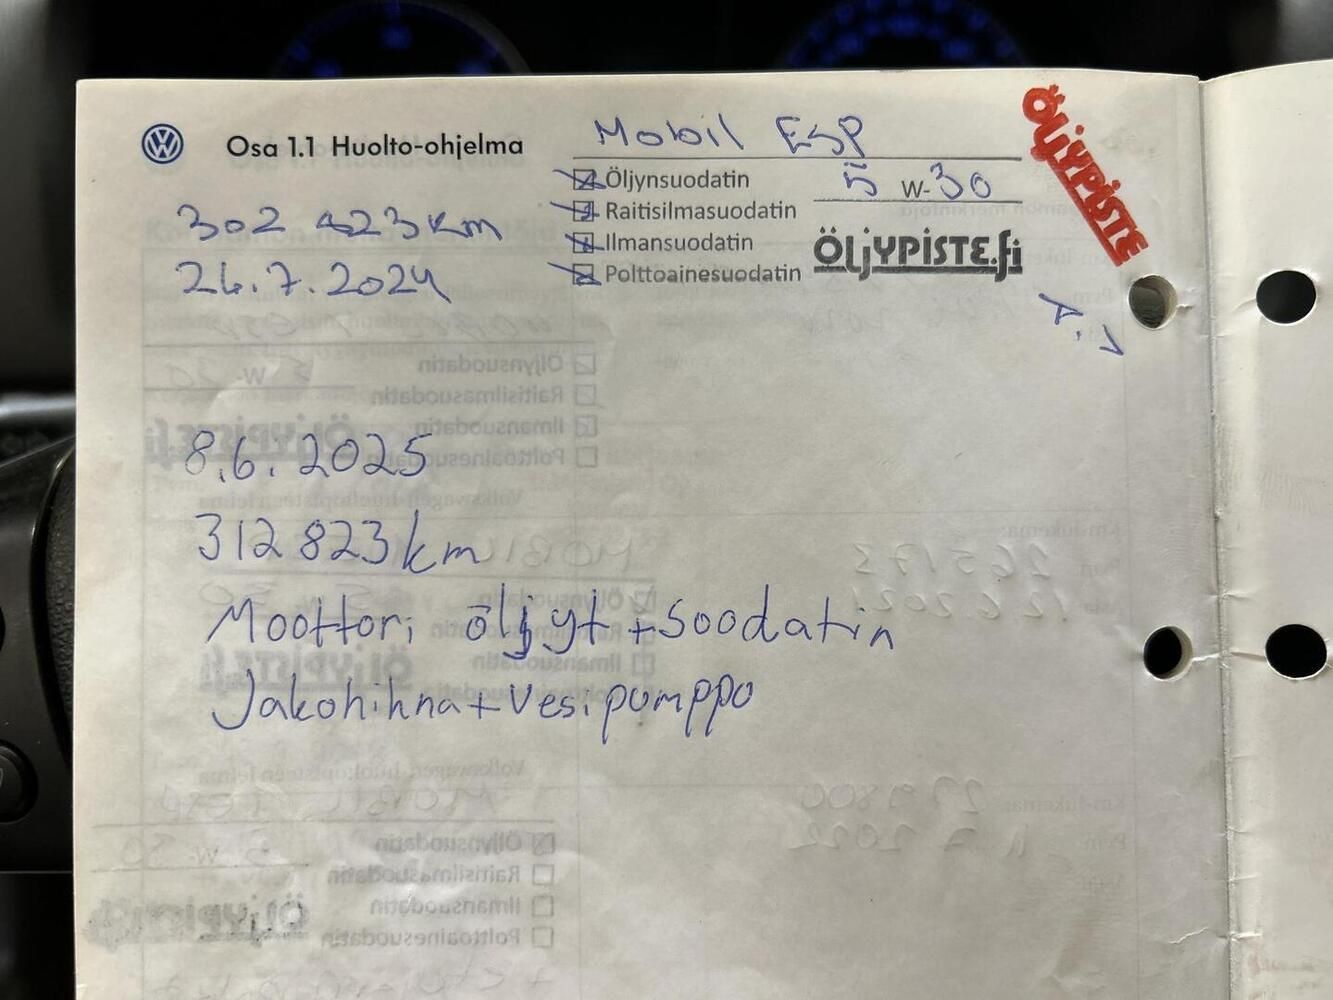 Osa 1.1 Huolto-ohjelma
Mobil ESP
Öljynsuodatin
5 W-30
Raitisilmasuodatin
Ilmansuodatin
Polttoainesuodatin
ÖLJYPISTE.fi
ÖLJYPISTE
302 423 km
26.7.2024
8.6.2025
312 823 km
Moottori öljyt + soodatin
Jakohihna + Vesipumppo